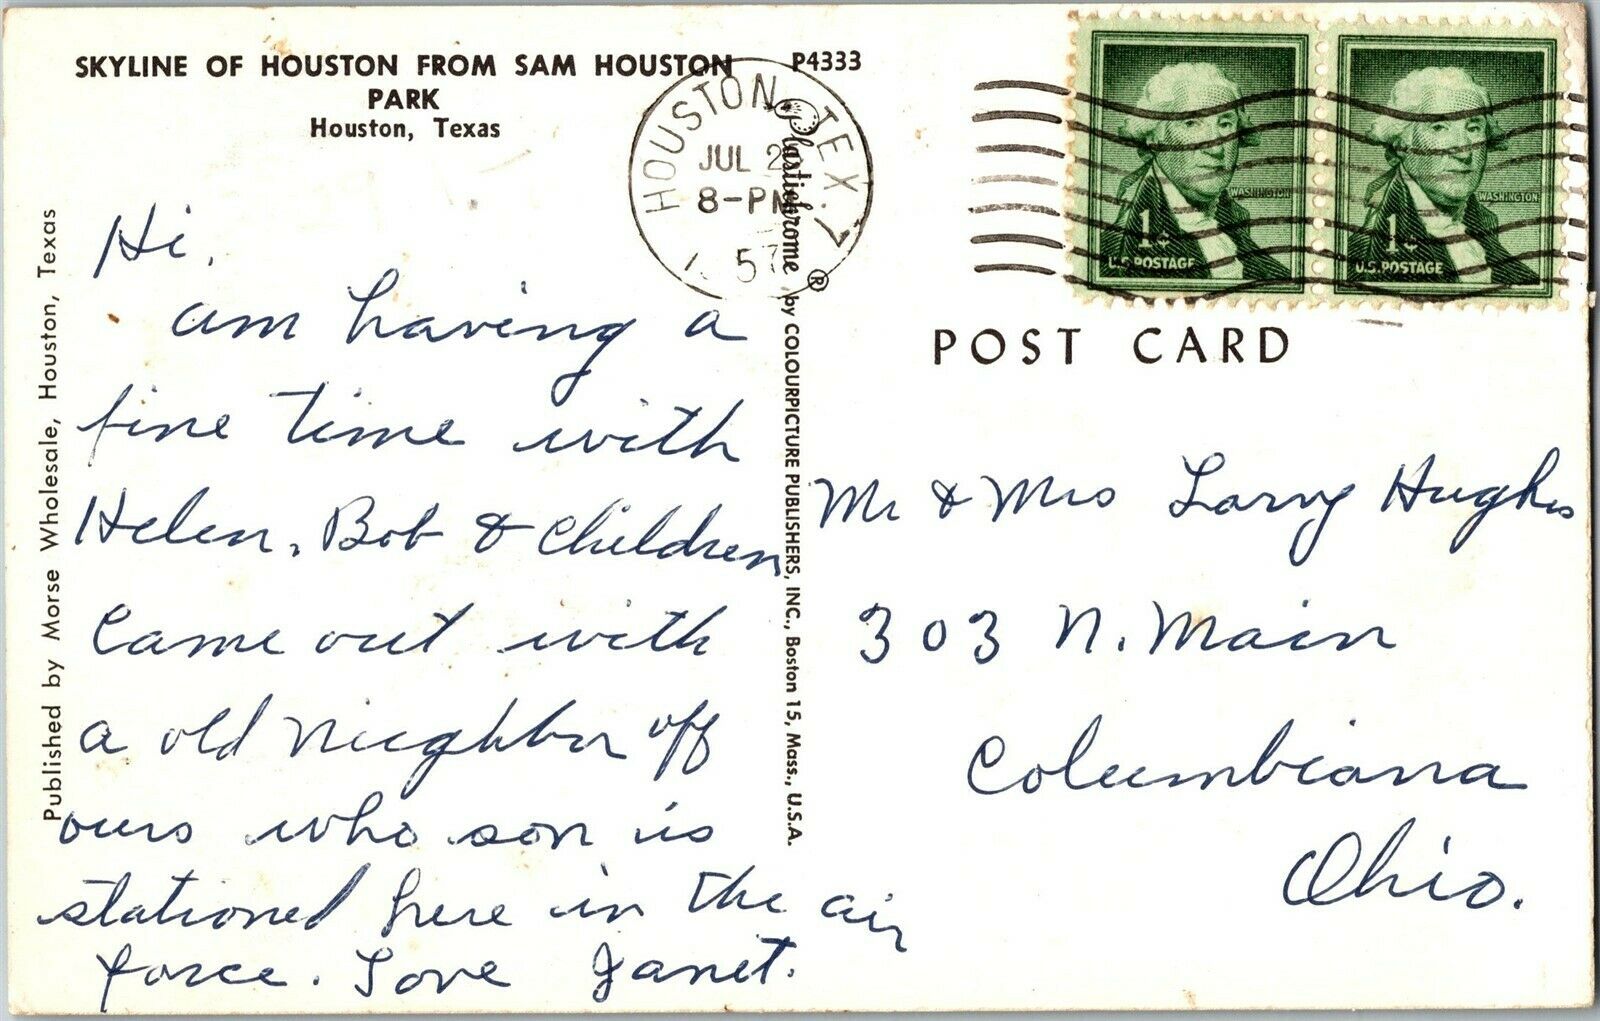 SKYLINE OF HOUSTON FROM SAM HOUSTON
PARK
Houston, Texas
P4333
Published by Morse Wholesale, Houston, Texas
Plastichrome ® by COLOURPICTURE PUBLISHERS, INC., Boston 15, Mass., U.S.A.
HOUSTON, TEX. 7
JUL 2
8-PM
57
WASHINGTON
1¢
U.S. POSTAGE
WASHINGTON
1¢
U.S. POSTAGE
POST CARD
Hi,
am having a
fine time with
Helen, Bob & Children
Came out with
a old Neighbor off
ours who son is
stationed here in the air
force. Love Janet.
Mr & Mrs Larry Hughes
303 N. Main
Columbiana
Ohio.